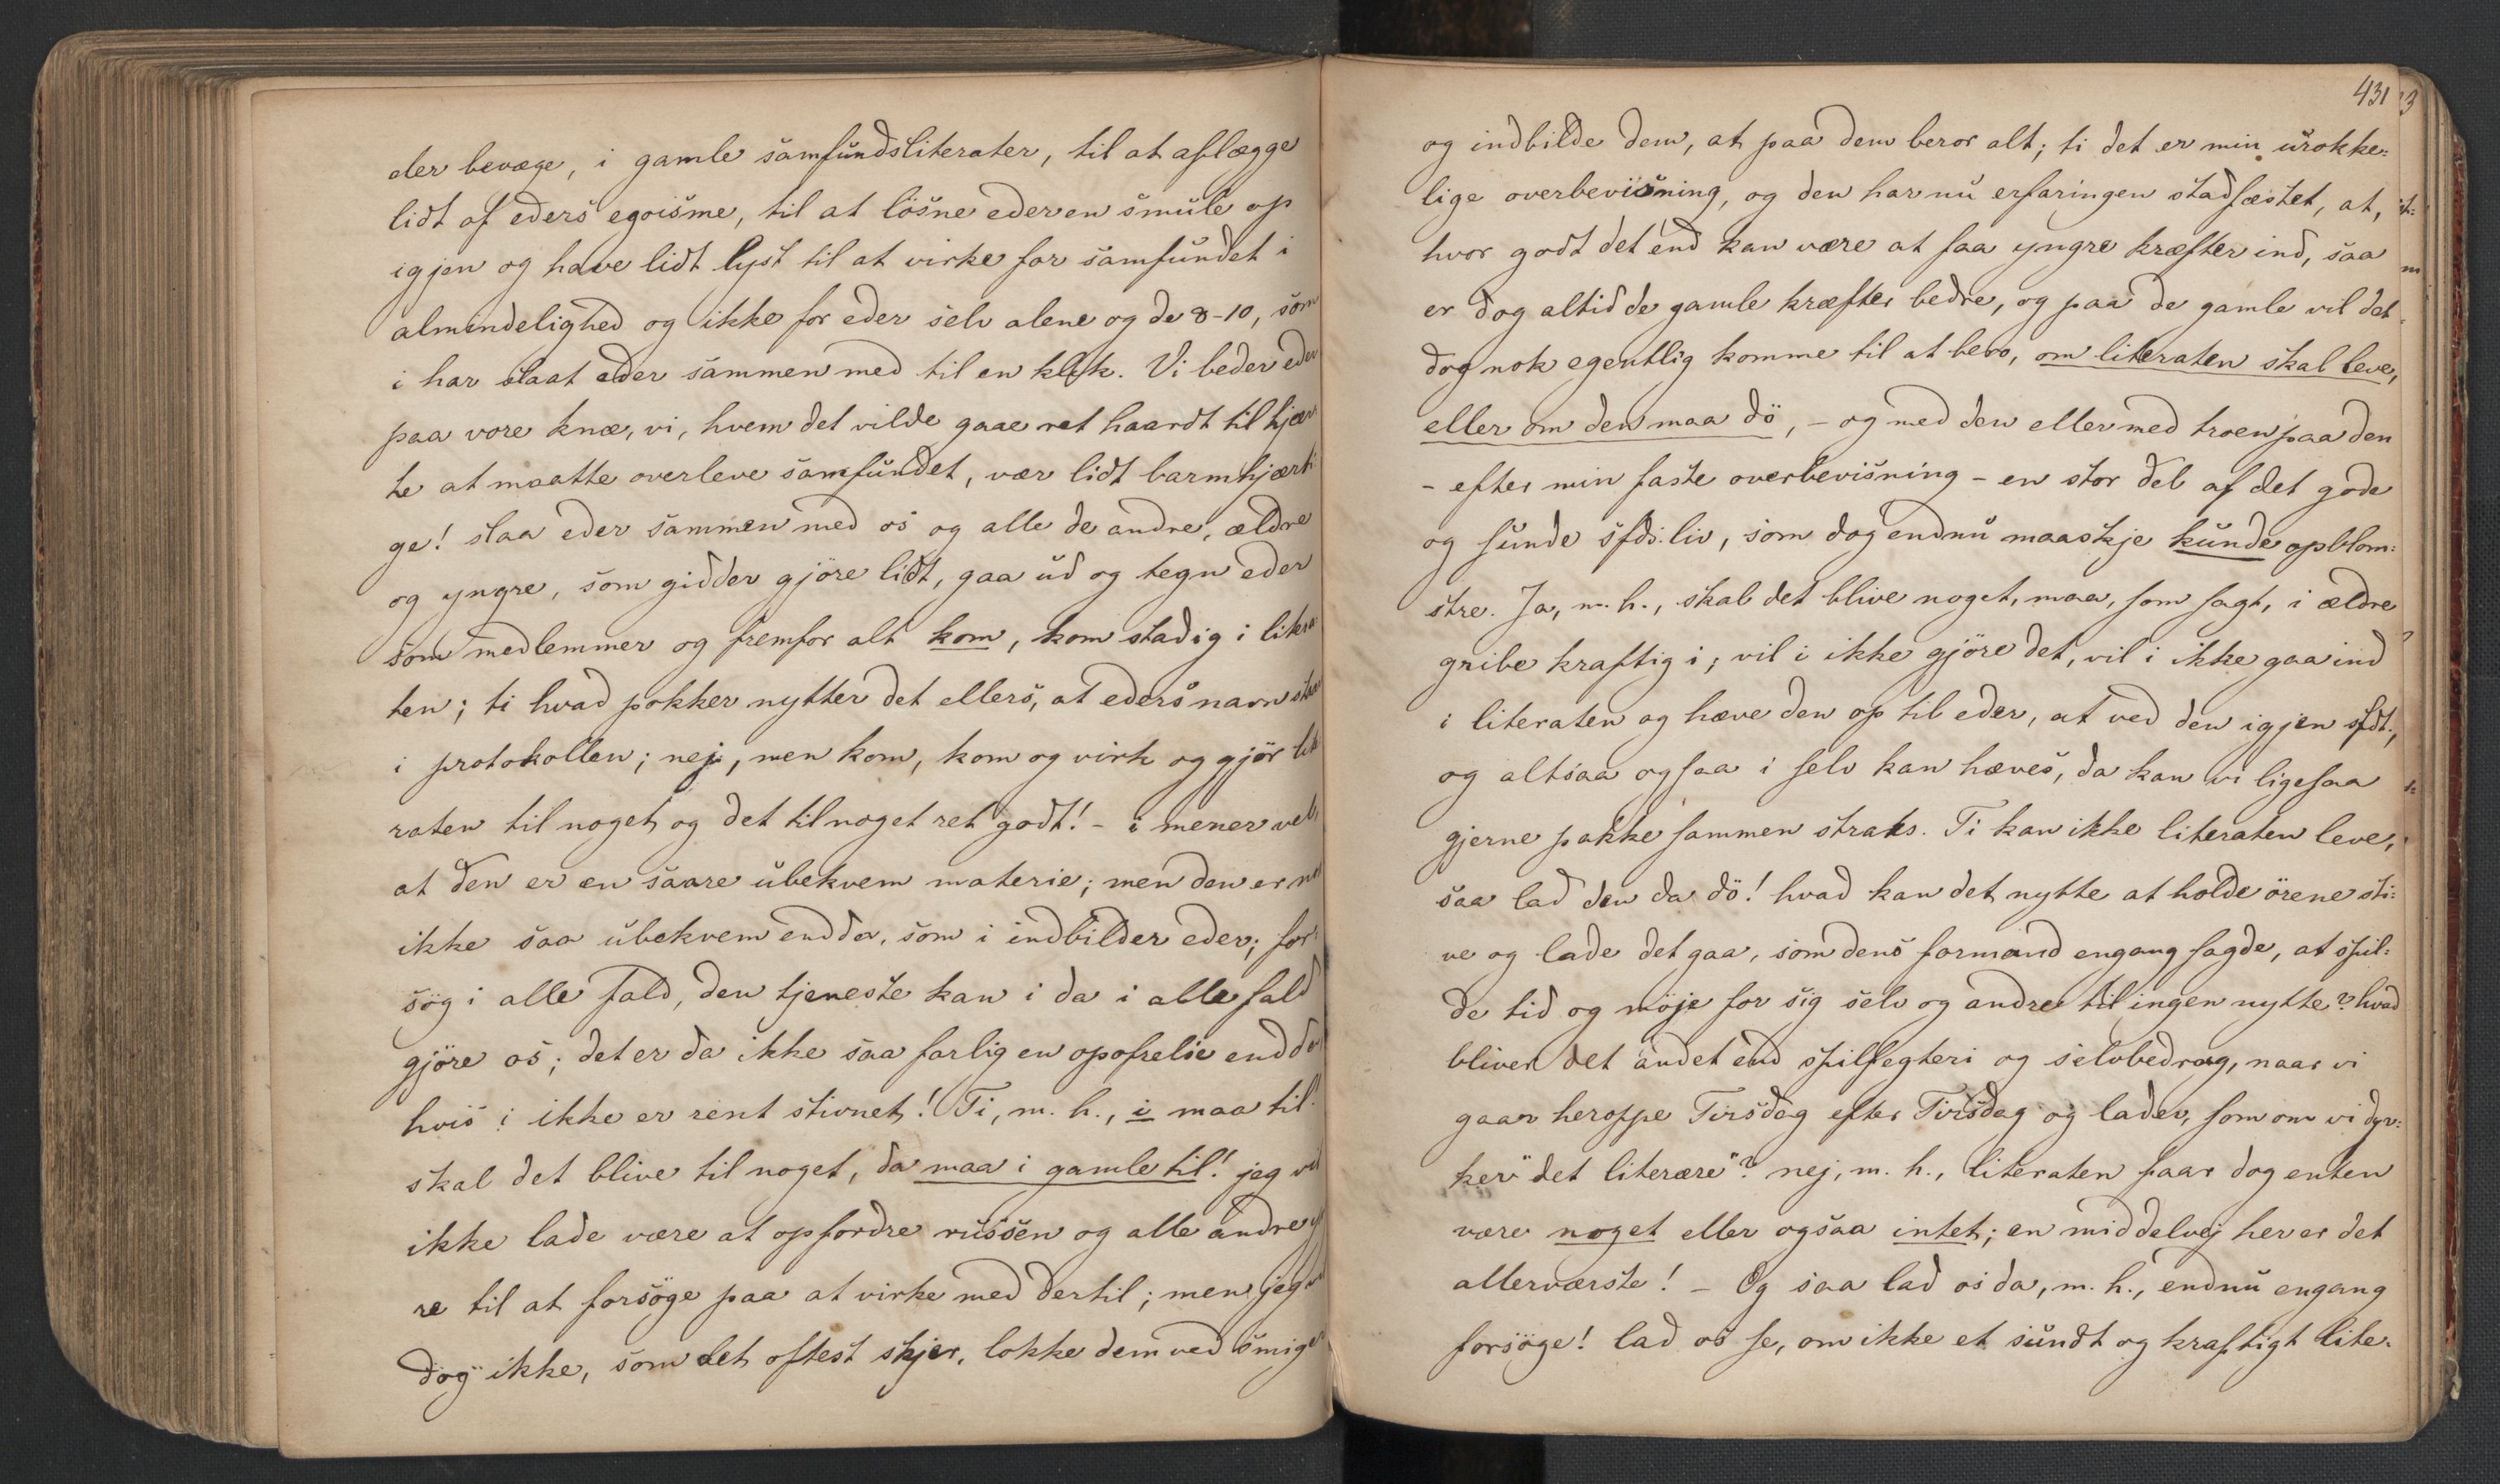 der bevæge, i gamle samfundsliterater, til at aflægge
lidt af eders egoisme, til at løsne eder en smule op
igjen og have lidt lyst til at virke for samfundet i
almindelighed og ikke for eder selv alene og de 8-10, som
i har slaat eder sammen med til en klik. Vi beder eder
paa vore knæ, vi, hvem det vilde gaae ret haardt til hjær-
te at maatte overleve samfundet, vær lidt barmhjærti-
ge! slaa eder sammen med os og alle de andre, ældre
og yngre, som gidder gjöre lidt, gaa ud og tegn eder
som medlemmer og fremfor alt kom, kom stadig i litera-
ten; ti hvad pokker nytter det ellers, at eders navn staar
i protokollen; nej, men kom, kom og virk og gjör lite
raten til noget og det til noget ret godt! - i mener vel,
at den er en saare ubekvem materie; men den er nu
ikke saa ubekvem endda, som i indbilder eder; for-
sög i alle fald, den tjeneste kan i da i alle fald
gjöre os; det er da ikke saa farlig en opofrelse endda
hvis i ikke er rent stivnet! Ti, m. h., i maa til!
skal det blive til noget, da maa i gamle til! jeg vil
ikke lade være at opfordre russen og alle andre yng
re til at forsöge paa at virke med dertil; men jeg vil
dog ikke, som det oftest skjer, lokke dem ved smiger
431
og indbilde dem, at paa dem beror alt; ti det er min urokke-
lige overbevisning, og den har nu erfaringen stadfæstet, at,
hvor godt det end kan være at faa yngre kræfter ind, saa
er dog altid de gamle kræfter bedre, og paa de gamle vil det
dog nok egentlig komme til at bero, om literaten skal leve,
eller om den maa dö, - og med den eller med troen paa den
- efter min faste overbevisning - en stor del af det gode
og sunde sfds.liv, som dog endnu maaskje kunde opblom-
stre. Ja, m. h., skal det blive noget, maa, som sagt, i ældre
gribe kraftig i; vil i ikke gjöre det, vil i ikke gaa ind
i literaten og hæve den op til eder, at ved den igjen sfdt.,
og altsaa ogsaa i selv kan hæves, da kan vi ligesaa
gjerne pakke sammen straks. Ti kan ikke literaten leve,
saa lad den da dö! hvad kan det nytte at holde örene sti-
ve og lade det gaa, som dens formand engang sagde, at spil-
de tid og möje for sig selv og andre til ingen nytte? hvad
bliver det andet end spilfegteri og selvbedrag, naar vi
gaar heroppe Tirsdag efter Tirsdag og lader, som om vi dyr-
ker "det literære"? nej, m. h., literaten faar dog enten
være noget eller ogsaa intet; en middelvej her er det
allerværste! - Og saa lad os da, m. h., endnu engang
forsöge! lad os se, om ikke et sundt og kraftigt lite-